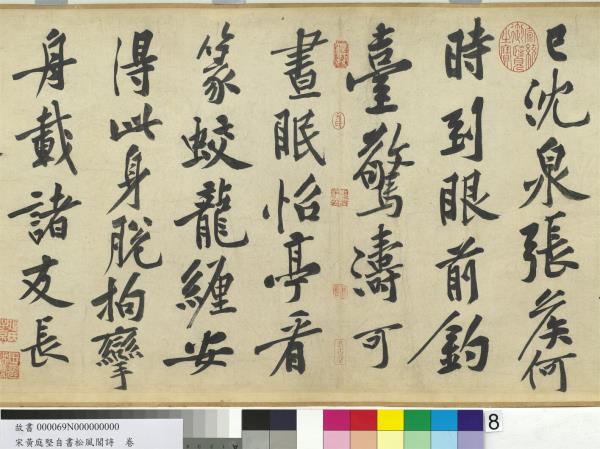 已沈泉張侯何
時到眼前釣
臺驚濤可
晝眠怡亭看
篆蛟龍纏安
得此身脫拘攣
舟載諸友長
8
故書 000069N000000000
宋黃庭堅自書松風閣詩 卷